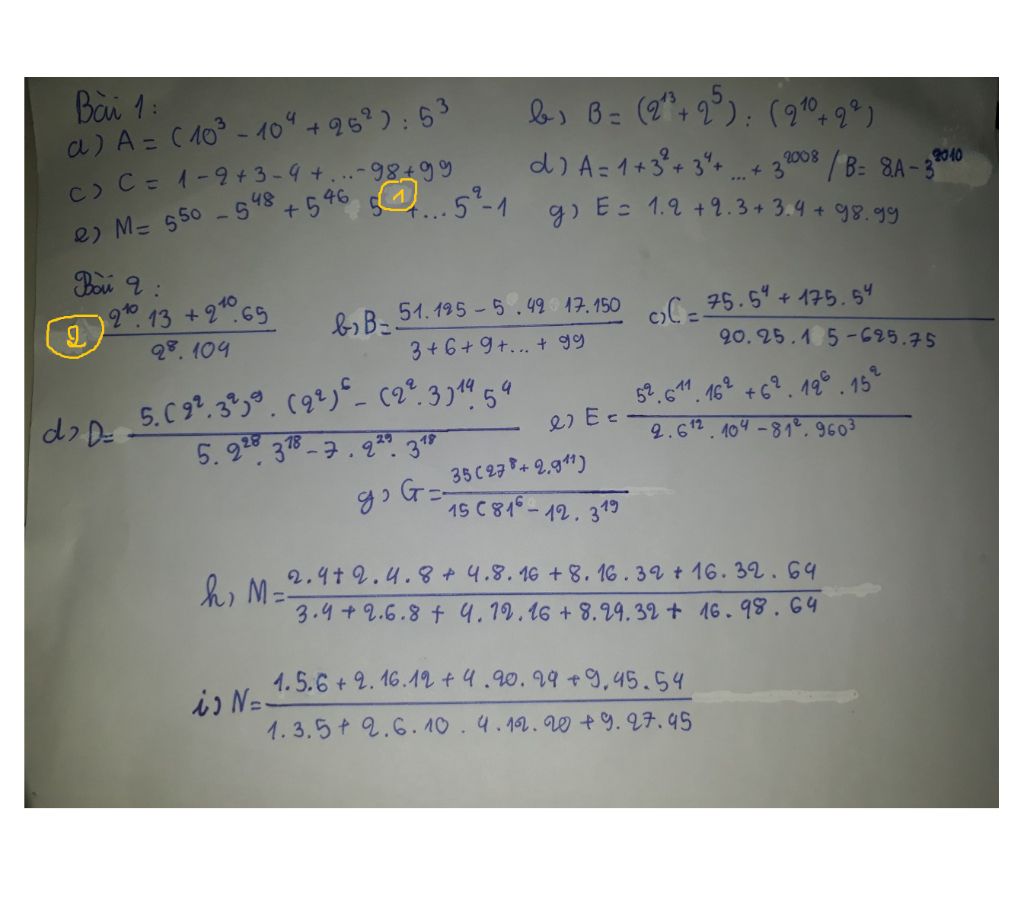 Bài 1:
a) A = (10³ - 10⁴ + 25²) : 5³
b) B = (2¹³ + 2⁵) : (2¹⁰ + 2²)
c) C = 1 - 2 + 3 - 4 + ... - 98 + 99
d) A = 1 + 3² + 3⁴ + ... + 3²⁰⁰⁸ / B = 8A - 3²⁰¹⁰
e) M = 5⁵⁰ - 5⁴⁸ + 5⁴⁶ 5 1 + ... 5² - 1
g) E = 1.2 + 2.3 + 3.4 + 98.99
Bài 2:
2 2¹⁰.13 + 2¹⁰.65 / 2⁸.104
b, B = 51.125 - 5.42 17.150 / 3 + 6 + 9 + ... + 99
c, C = 75.5⁴ + 175.5⁴ / 20.25.1 5 - 625.75
d, D = 5.(2².3²)⁹.(2²)⁶ - (2².3)¹⁴.5⁴ / 5.2²⁸.3¹⁸ - 7.2²⁹.3¹⁸
e, E = 5².6¹¹.16² + 6².12⁶.15² / 2.6¹².10⁴ - 81².960³
g, G = 35(27⁸ + 2.9¹¹) / 15(81⁶ - 12.3¹⁹
h, M = 2.4 + 2.4.8 + 4.8.16 + 8.16.32 + 16.32.64 / 3.4 + 2.6.8 + 4.12.16 + 8.24.32 + 16.98.64
i, N = 1.5.6 + 2.16.12 + 4.20.24 + 9.45.54 / 1.3.5 + 2.6.10 . 4.12.20 + 9.27.45